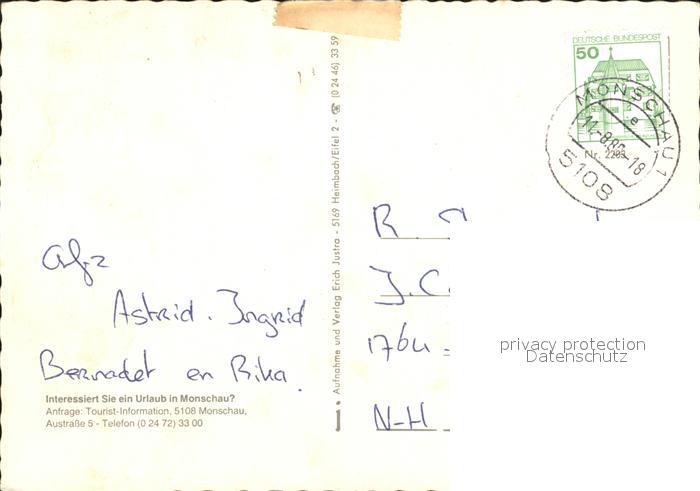 DEUTSCHE BUNDESPOST
50
MONSCHAU 1
e
5108
Nr. 2203
Afz
Astrid. Ingrid
Bernadet en Rika.
Interessiert Sie ein Urlaub in Monschau?
Anfrage: Tourist-Information, 5108 Monschau,
Austraße 5 - Telefon (0 24 72) 33 00
Aufnahme und Verlag Erich Justra - 5169 Heimbach/Eifel 2 - ☎ (0 24 46) 33 59
R
J.C.
N-H
privacy protection
Datenschutz